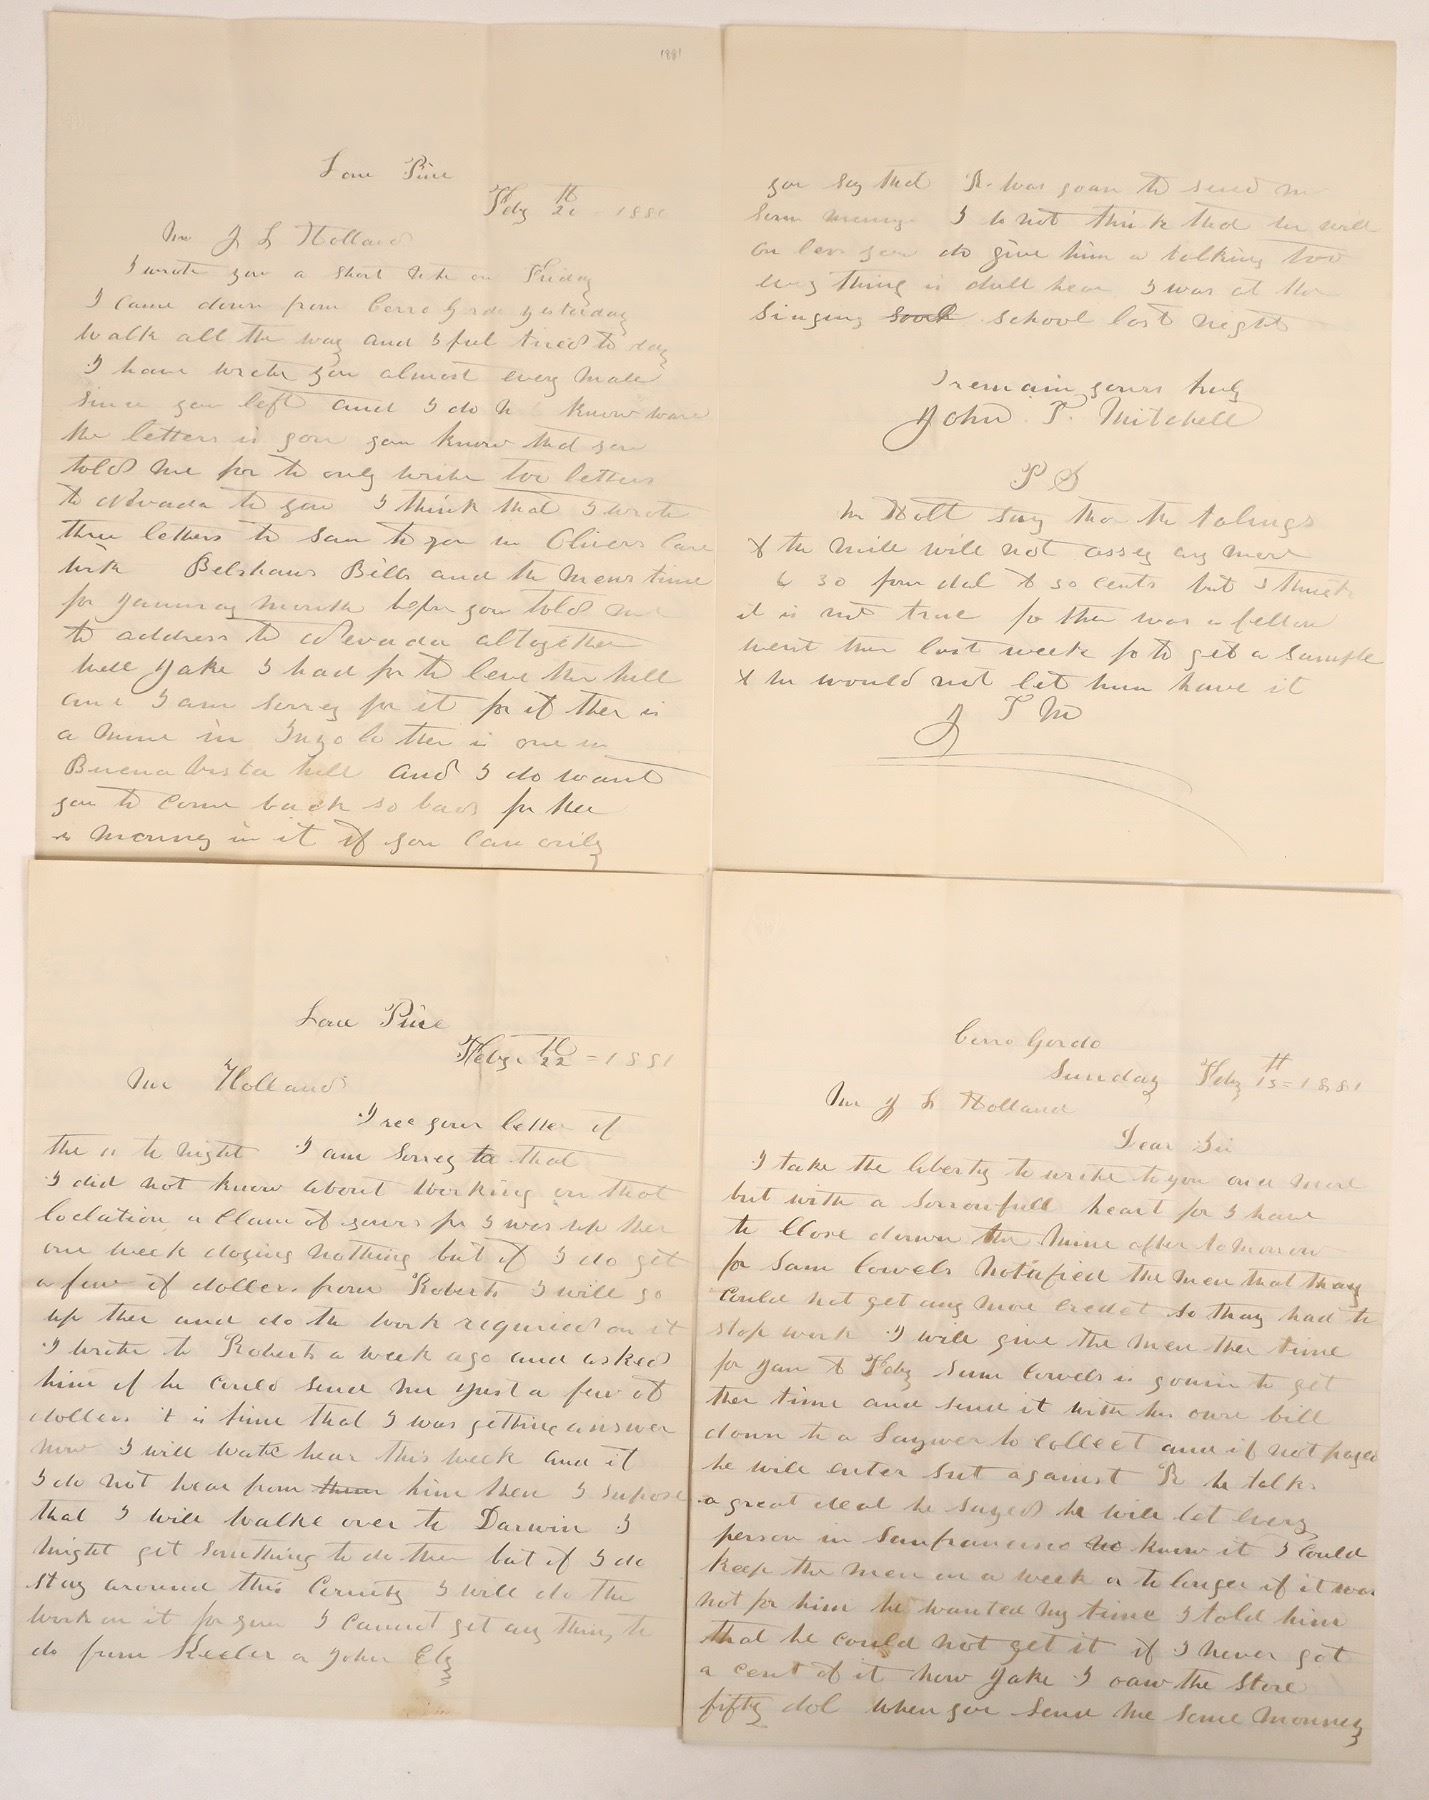 1881
Lone Pine
Feby 20th 1881
Mr J L Holland
I wrote you a short note on Friday
I came down from Cerro Gordo yesterday
walk all the way and I feel tired to day
I have wrote you almost every male
since you left and I do n know ware
the letters is gon you know that you
told me for to only write two letters
to Nevada to you I think that I wrote
three letters to San to you in Olivers Care
with Belshaws Bills and the mens time
for Januray month befor you told me
to address to Nevada altogether
well Jake I had for to leve the hill
and I am sorrey for it for if ther is
a mine in Inyo Co ther is one in
Buena Vista hill and I do want
you to come back so bad for ther
is monney in it if you can only
you say that R. was goan to send me
som monney I do not think that he will
on less you do give him a talking too
every thing is dull hear I was at the
Singing soock school last night
I remain yours truly
John T. Mitchell
P S
Mr Holt say that the talings
X the mill will not assey any more
6 30 from dol to 50 cents but I think
it is not true for ther was a fellow
went ther last week for to get a sample
X he would not let him have it
J T M
Lone Pine
Feby 22th = 1881
Mr Holland
I rec your letter of
the 11 to night I am sorrey to that
I did not know about working on that
loclation a Clame of yours for I was up ther
one week doging nothing but if I do get
a few of dollers from Roberts I will go
up ther and do the work required on it
I write to Roberts a week ago and asked
him if he could send me just a few of
dollers it is time that I was getting answer
now I will wate hear this week and if
I do not hear from them him then I supose
that I will walke over to Darwin I
might get something to do ther but if I do
stay around this County I will do the
work on it for you I cannot get any thing to
do from Keeler or John Ely
Cerro Gordo
Sunday Feby 13th = 1881
Mr J L Holland
Dear Sir
I take the liberty to write to you once more
but with a sorrowfull heart for I have
to Close down the mine after tomorrow
for Sam Cowels notafied the men that thay
could not get any more credet so thay had to
stop work I will give the men ther time
for Jan & Feby Sam Cowels is gowin to get
ther time and send it with his own bill
down to a Laywer to collect and if not payed
he will enter sut against R he talks
a great deal he sayed he will let every
person in Sanfrancisco no know it I could
keep the men on a week or to longer if it was
not for him he wanted my time I told him
that he could not get it if I never got
a cent of it now Jake I oaw the store
fifty dol when you send me some monney